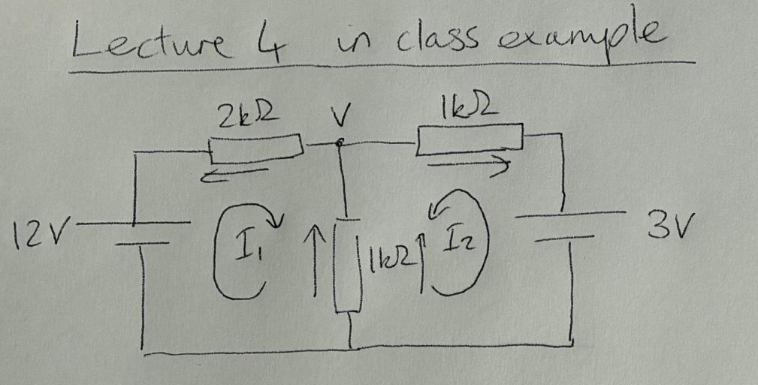 Lecture 4 in class example
2kΩ V 1kΩ
12V I₁ 1kΩ I₂ 3V